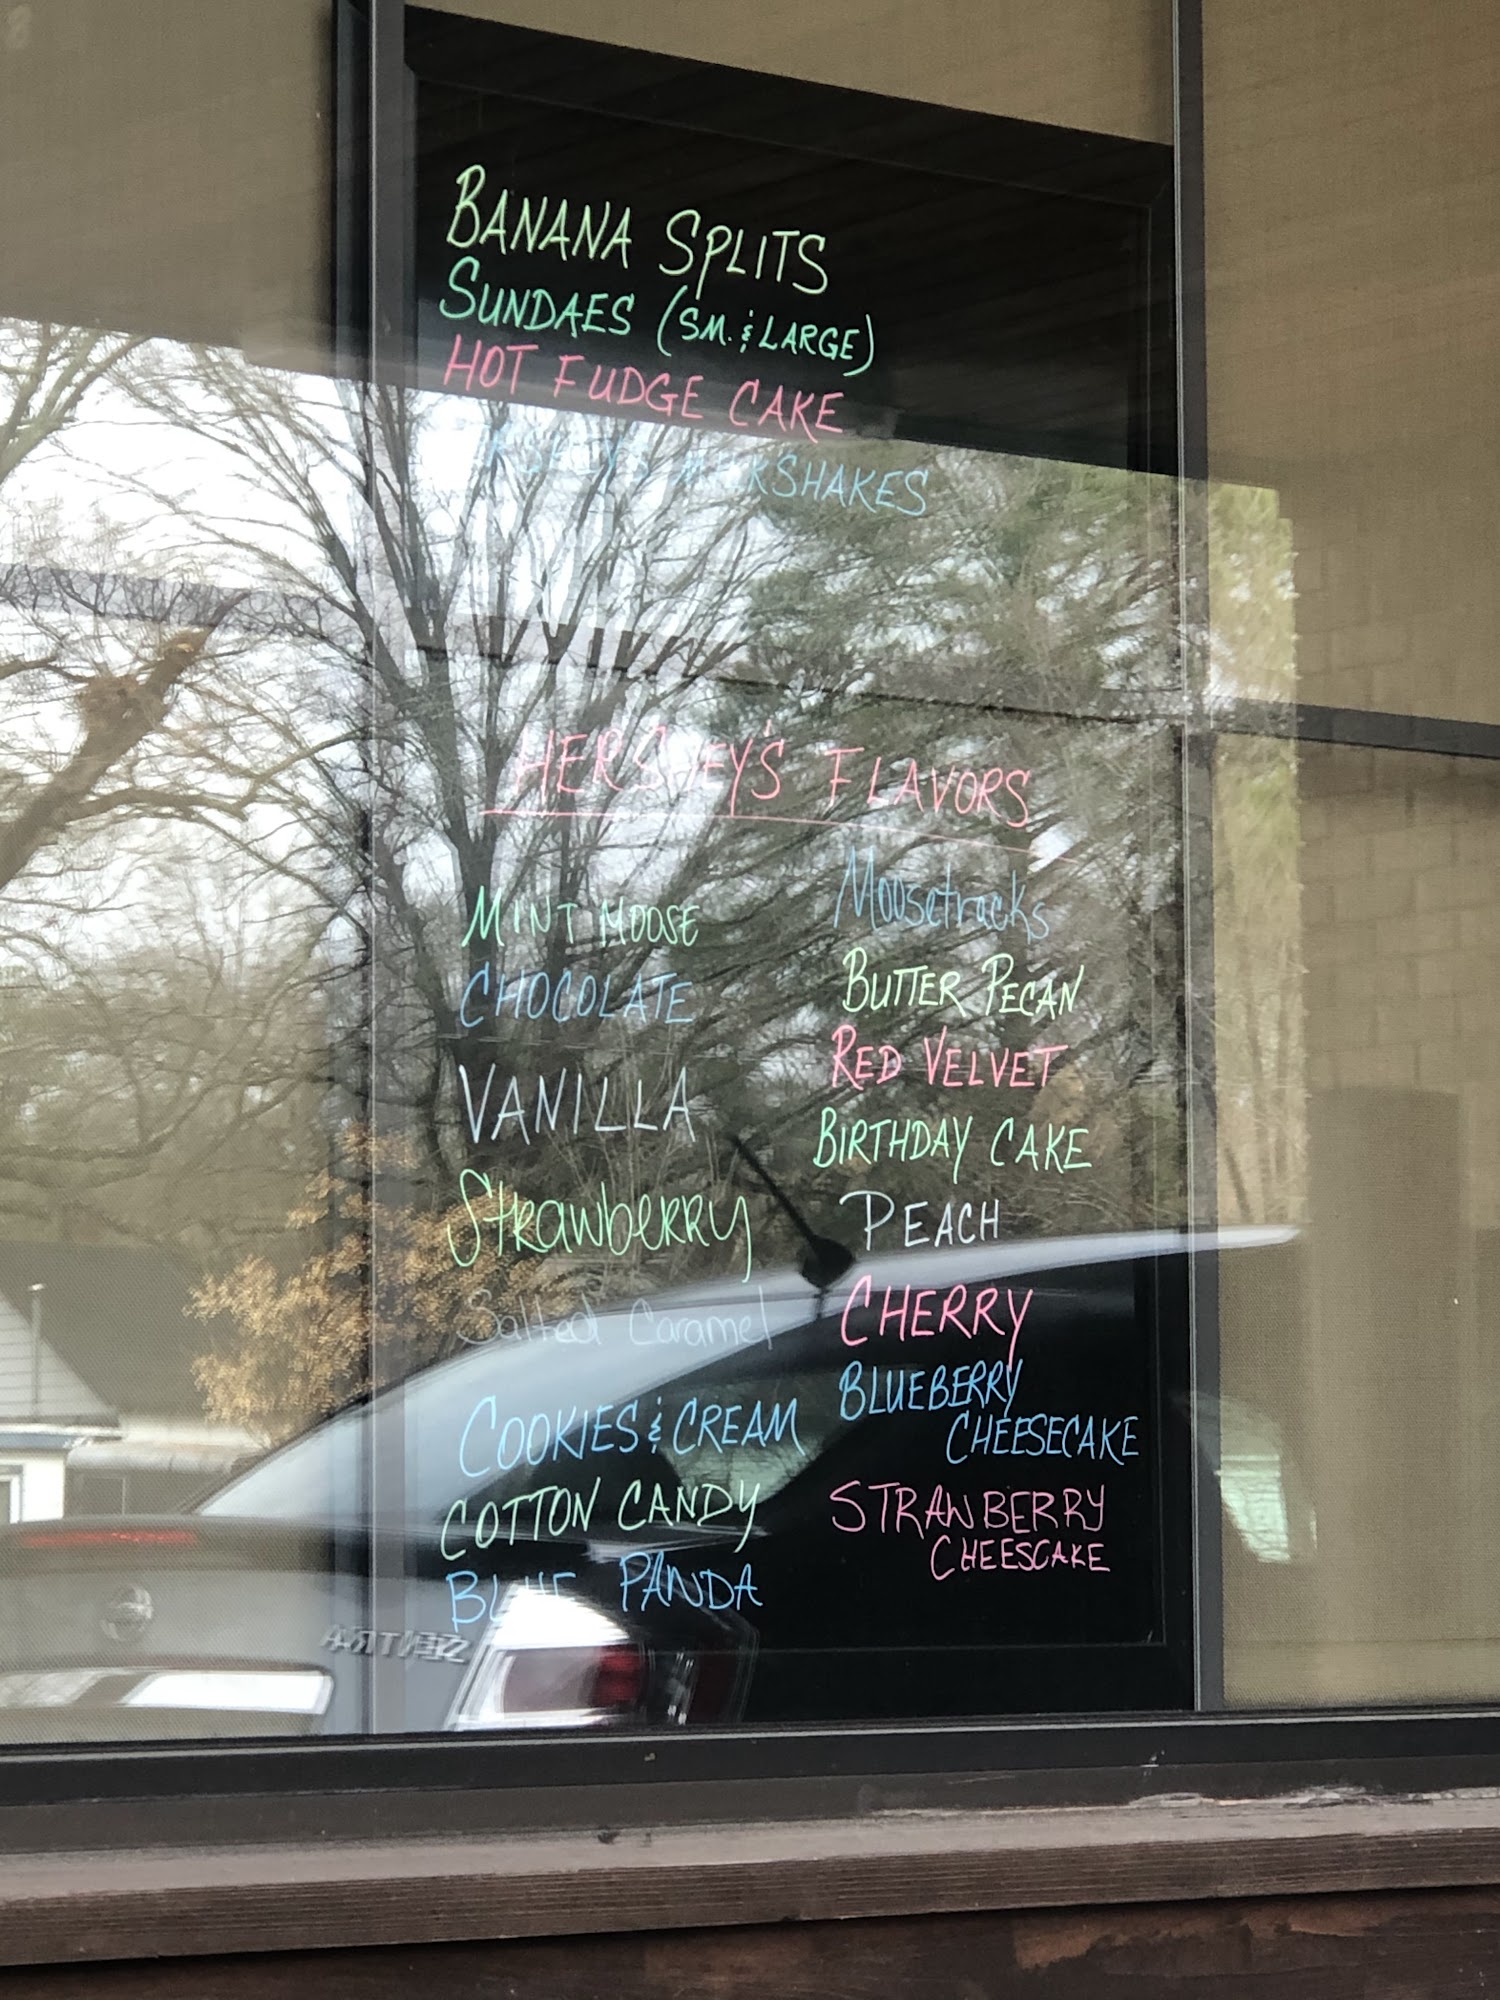 BANANA SPLITS
SUNDAES (SM. & LARGE)
HOT FUDGE CAKE
MILKSHAKES
HERSHEY'S FLAVORS
MINT MOOSE
CHOCOLATE
VANILLA
Strawberry
Salted Caramel
COOKIES & CREAM
COTTON CANDY
BLUE PANDA
Moosetracks
BUTTER PECAN
RED VELVET
BIRTHDAY CAKE
PEACH
CHERRY
BLUEBERRY
CHEESECAKE
STRAWBERRY
CHEESCAKE
SENTRA